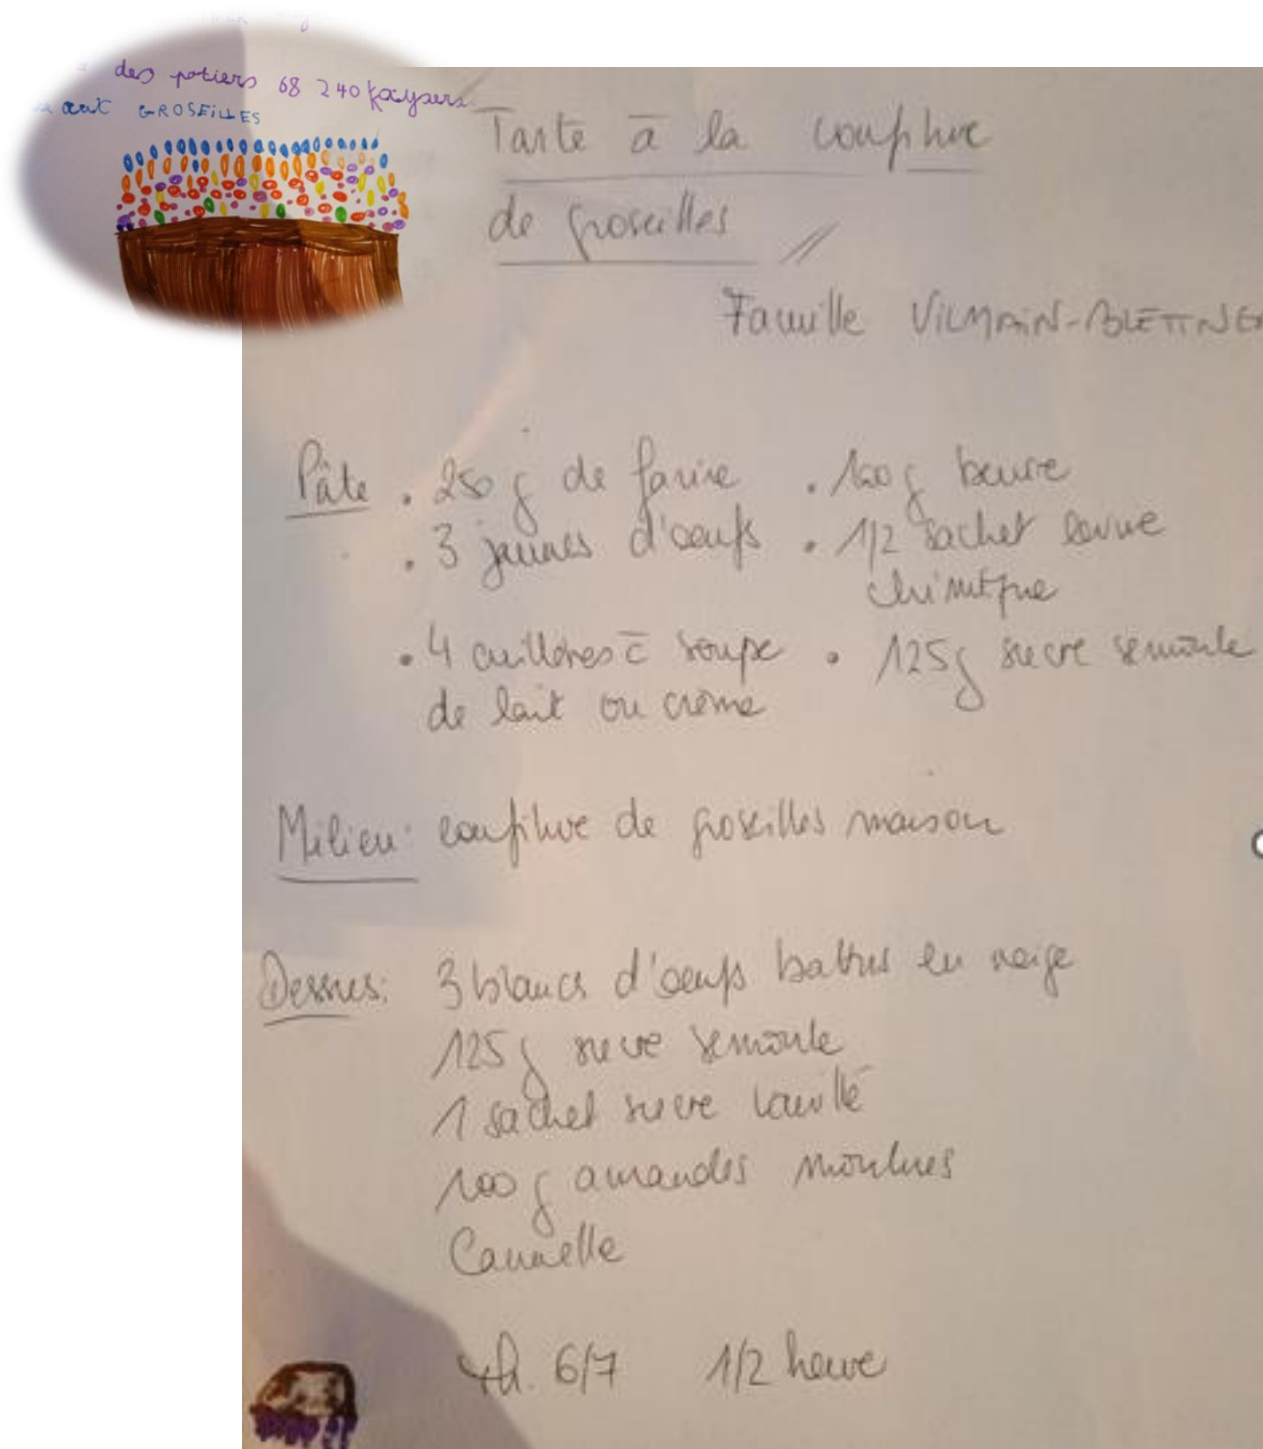 des potiers 68 240 Kaysers
aux GROSEILLES
Tarte à la confiture
de groseilles
Famille VILMAIN-BLETTNER
Pâte . 250 g de farine . 100 g beurre
. 3 jaunes d'oeufs . 1/2 sachet levure
chimique
. 4 cuillères à soupe . 125 g sucre semoule
de lait ou crème
Milieu: confiture de groseilles maison
Dessus: 3 blancs d'oeufs battus en neige
125 g sucre semoule
1 sachet sucre vanillé
100 g amandes moulues
Cannelle
th. 6/7 1/2 heure